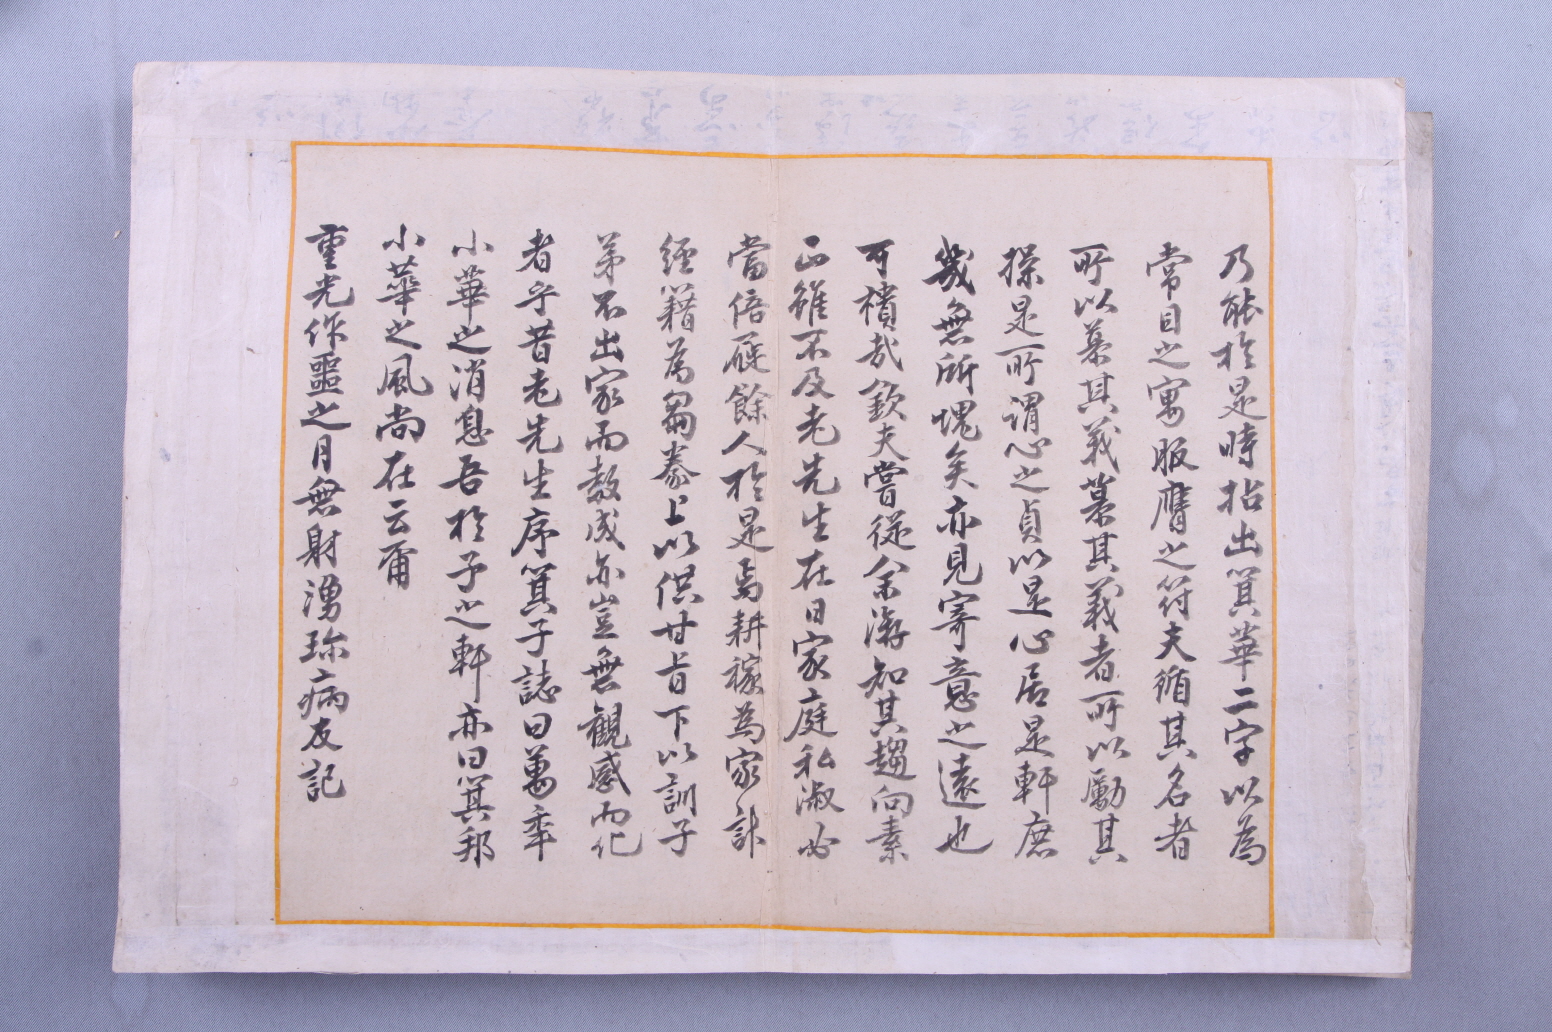 乃能於是時拈出箕華二字以為
常目之寓服膺之符夫循其名者
所以慕其義慕其義者所以勵其
操是所謂心之貞以是心居是軒庶
幾無所愧矣亦見寄意之遠也
可禭哉欽夫嘗從余游知其趨向素
正雖不及老先生在日家庭私淑必
當倍蓰餘人於是焉耕稼為家計
經籍為芻豢上以供甘旨下以訓子
弟不出家而教成亦豈無觀感而化
者乎昔老先生序箕子誌曰萬年
小華之消息吾於子之軒亦曰箕邦
小華之風尚在云爾
重光作噩之月無射湧珎病友記